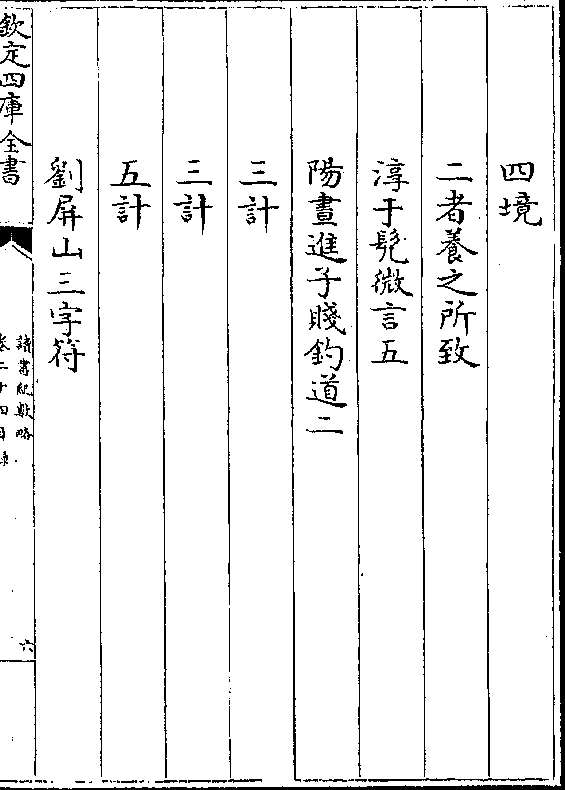 四境
二者養之所致
淳于髡微言五
陽晝進子賤釣道二
三計
三計
五計
劉屏山三字符
欽定四庫全書
諸書紀數略
卷二十四目錄
六